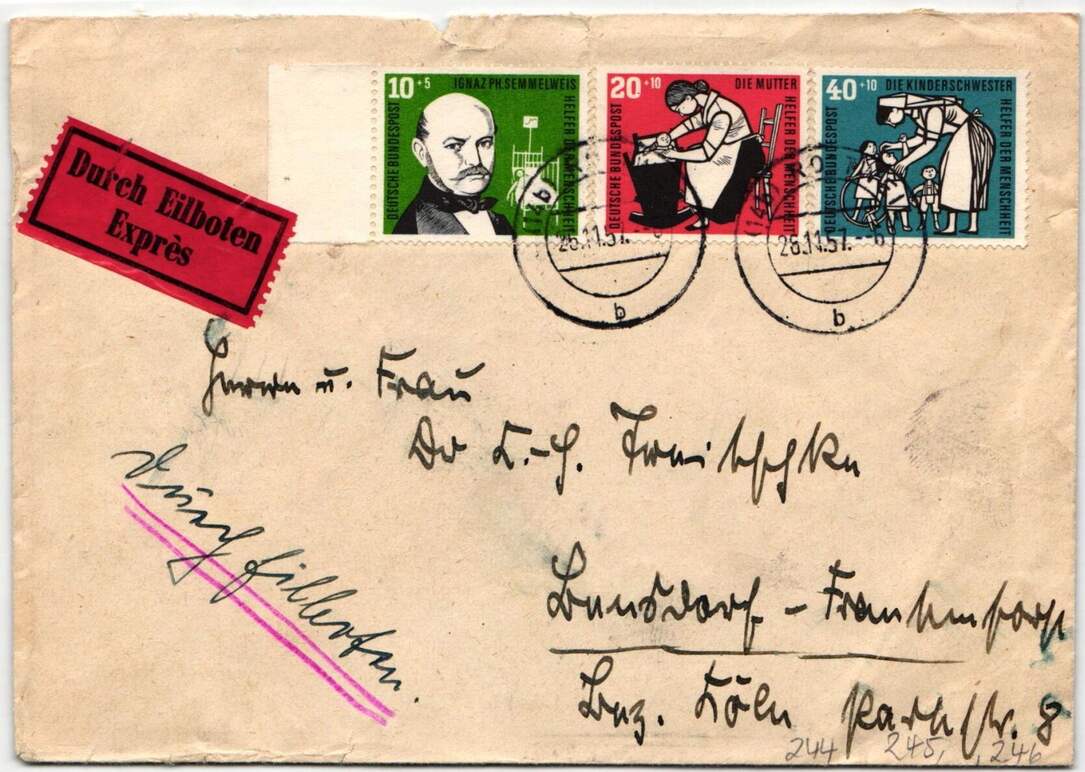 10+5 IGNAZ PH. SEMMELWEIS
DEUTSCHE BUNDESPOST
HELFER DER MENSCHHEIT
20+10 DIE MUTTER
DEUTSCHE BUNDESPOST
HELFER DER MENSCHHEIT
40+10 DIE KINDERSCHWESTER
DEUTSCHE BUNDESPOST
HELFER DER MENSCHHEIT
26.11.57.
b
26.11.57.
b
Durch Eilboten
Exprès
Herrn u. Frau
Dr
Durch Eilboten.
Bensdorf - Frankenforst
Bez. Köln Parkstr. 8
244 245, 246